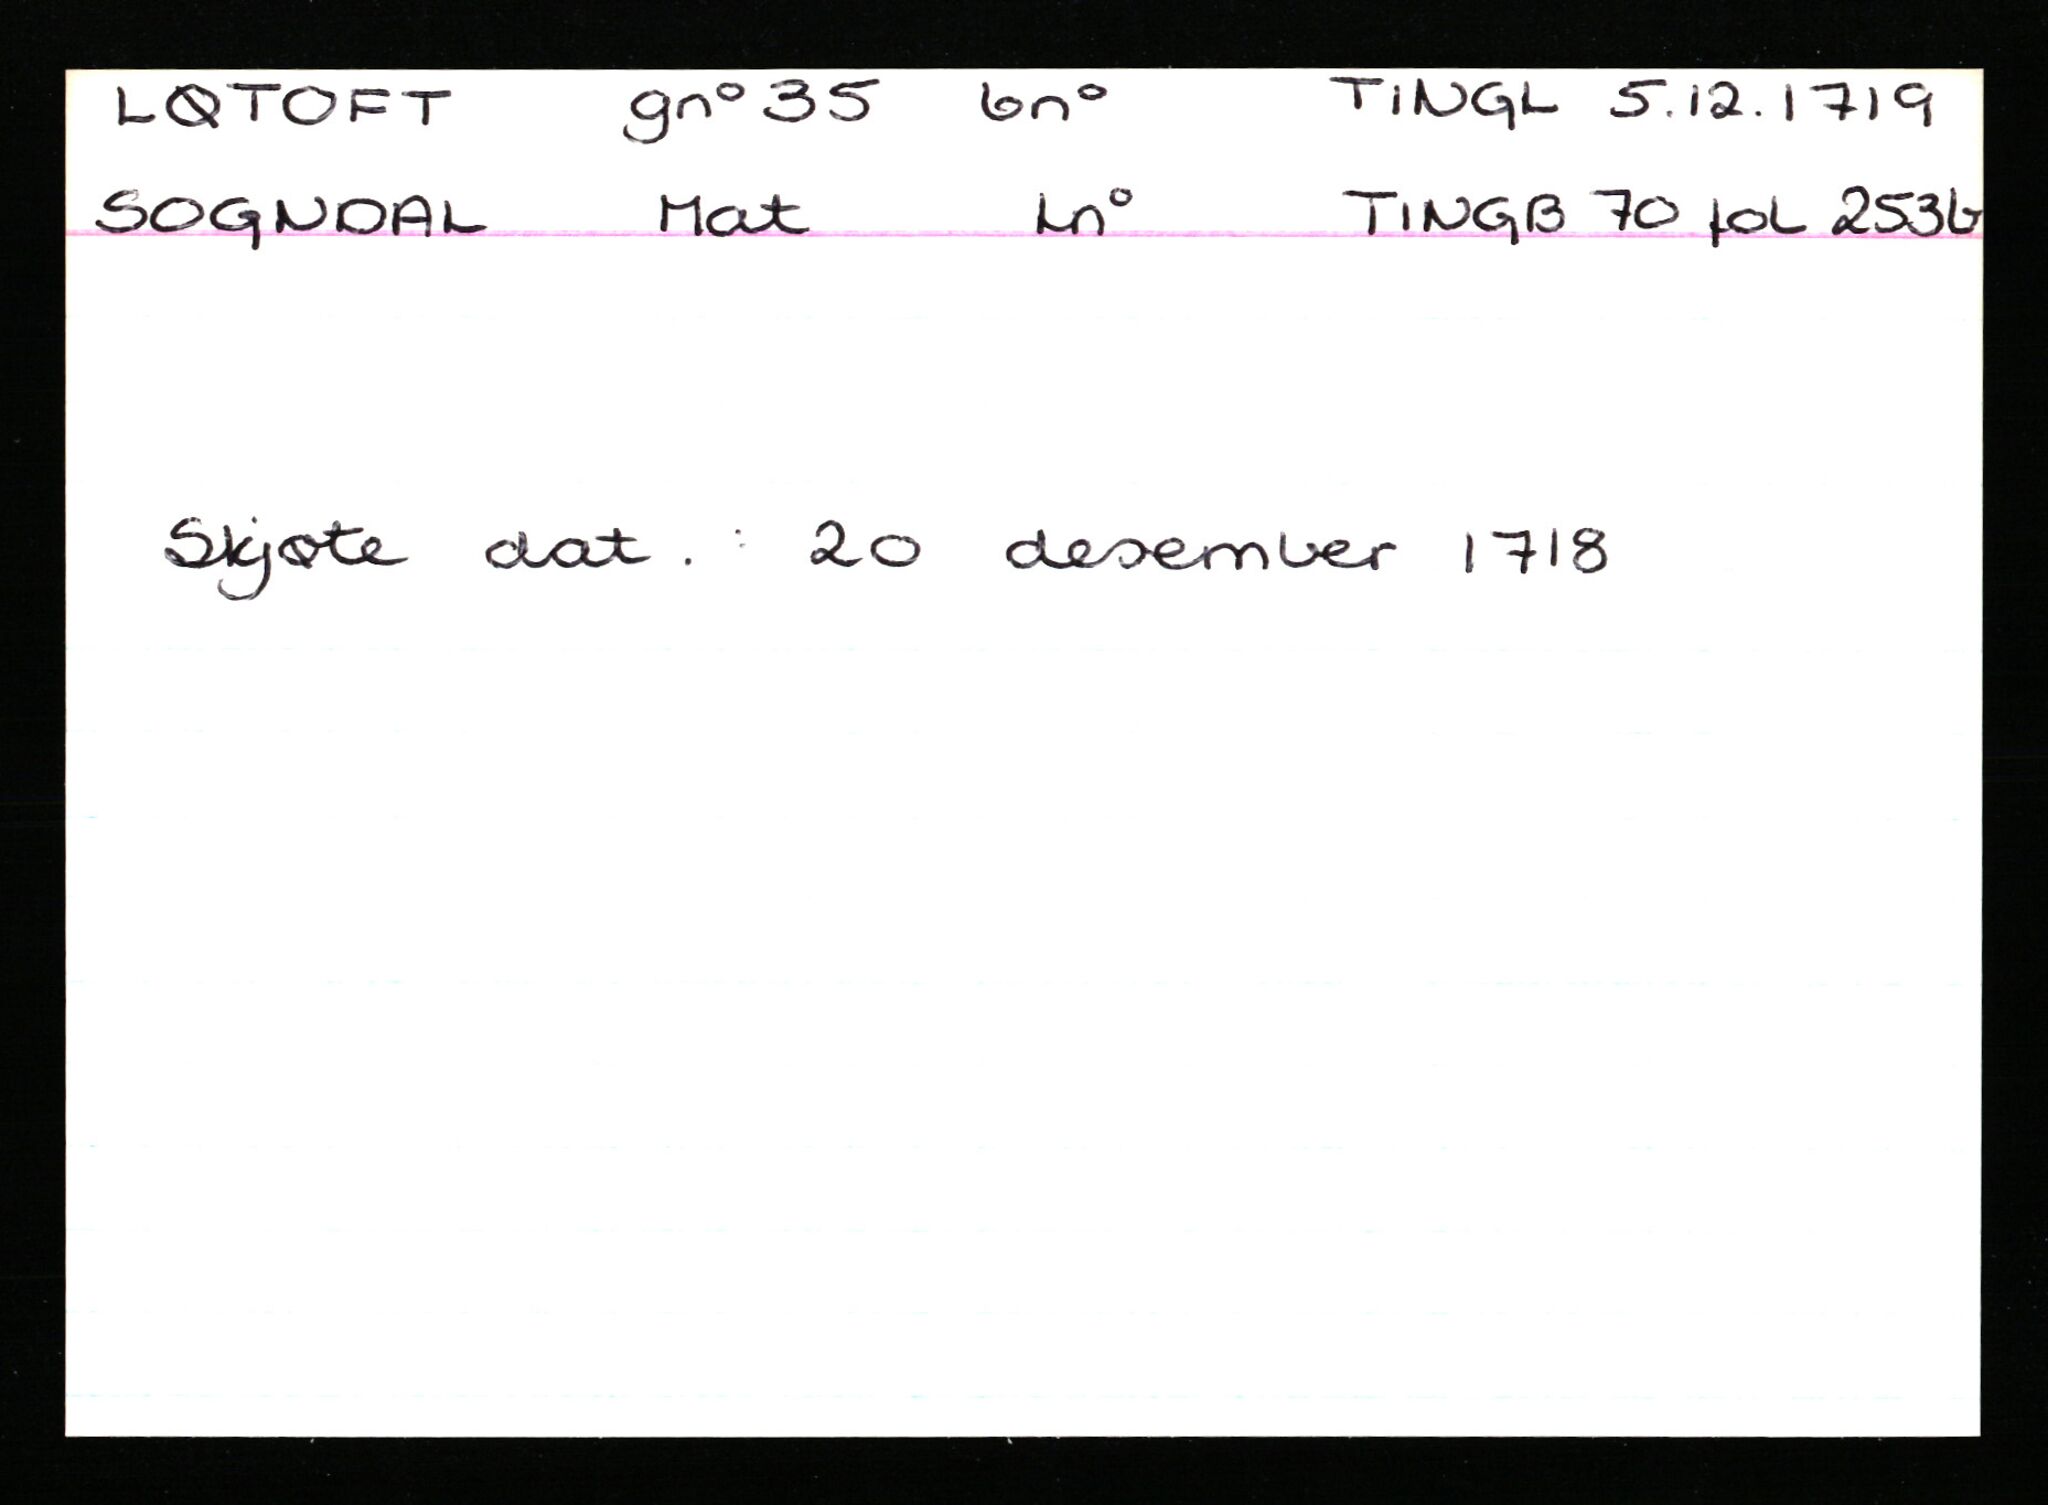 LØTOFT gnº 35 bnº TINGL 5.12.1719
SOGNDAL Mat Lnº TINGB 70 fol 253b
Skjøte dat. : 20 desember 1718